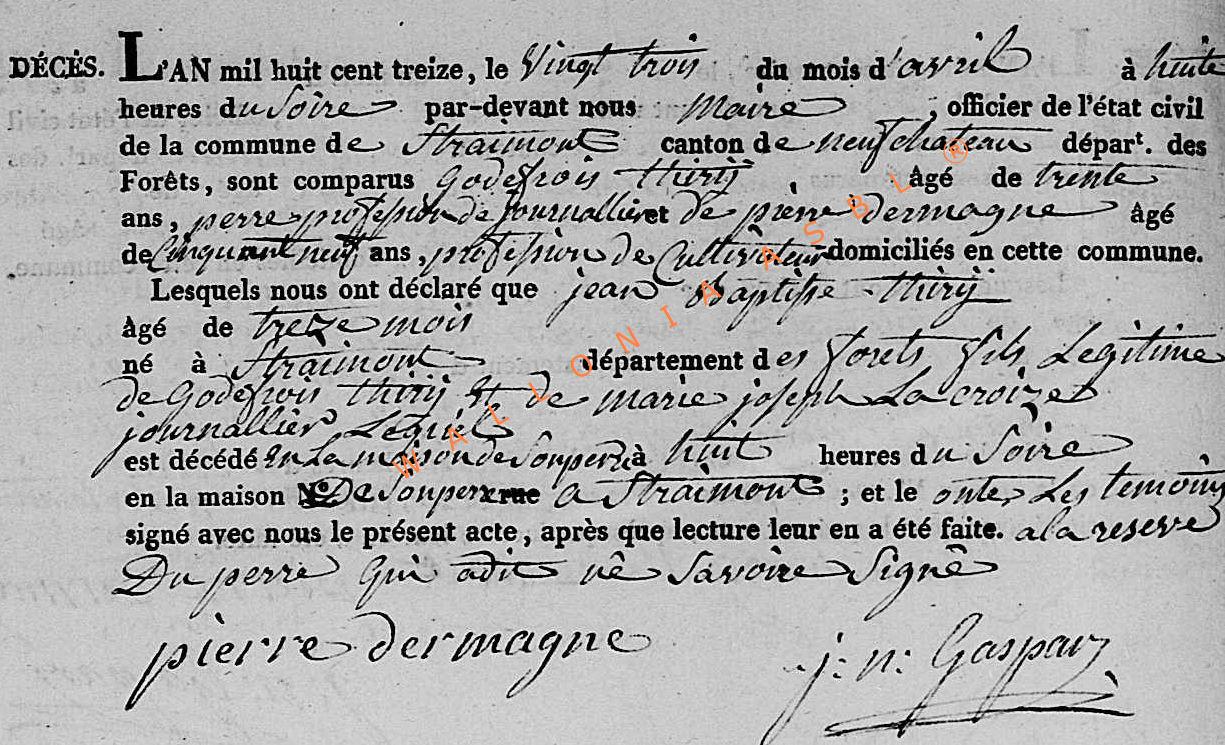 DÉCÈS. L'AN mil huit cent treize, le Vingt trois du mois d'avril à huite
heures du Soire par-devant nous Maire, officier de l'état civil
de la commune de Straimont canton de neufchateau dépar<sup>t</sup>. des
Forêts, sont comparus Godefrois thirÿ, âgé de trente
ans, perre profession de journallier et de pierre dermagne âgé
de Cinquant neuf ans, profession de Cultivateur domiciliés en cette commune.
Lesquels nous ont déclaré que jean Baptiste thirÿ
âgé de treize mois
né à Straimont département des forets fils Legitime
de Godefrois thirÿ Et de marie joseph La croix et
journallier Lequel
est décédé En La maison de Son perre à huit heures du Soire
en la maison N.° De Son perre rue a Straimont; et le onte Les temoins
signé avec nous le présent acte, après que lecture leur en a été faite. a la reserve
Du perre Qui adit nê Savoire Signê
pierre dermagne
j: n: Gaspar
WALLONIA ASBL ®